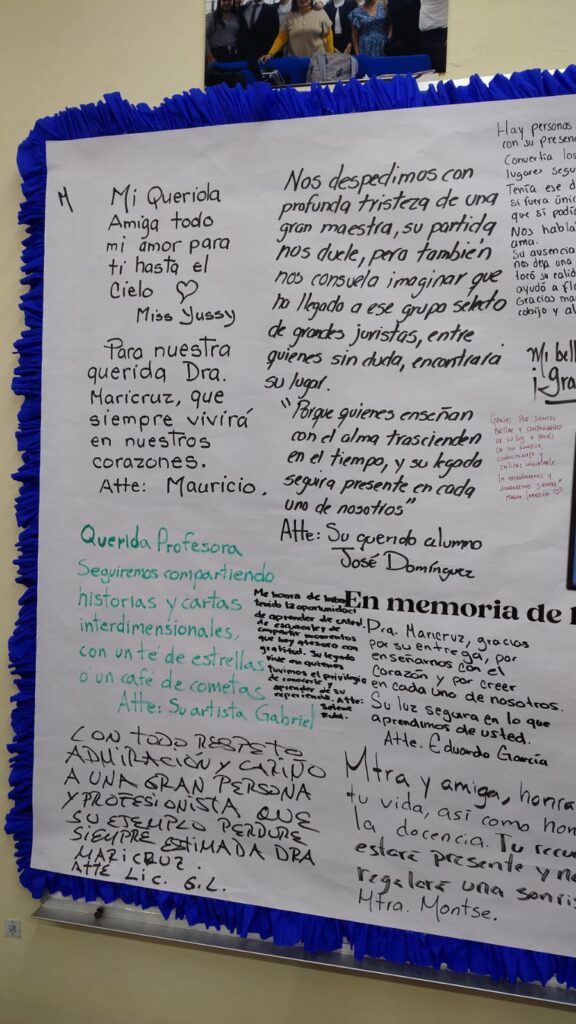 M
Mi Querida
Amiga todo
mi amor para
ti hasta el
Cielo ♡
Miss Yussy
Para nuestra
querida Dra.
Maricruz, que
siempre vivirá
en nuestros
corazones.
Atte: Mauricio.
Querida Profesora
Seguiremos compartiendo
historias y cartas
interdimensionales,
con un té de estrellas
o un café de cometas
Atte: Su artista Gabriel
CON TODO RESPETO
ADMIRACIÓN Y CARIÑO
A UNA GRAN PERSONA
Y PROFESIONISTA QUE
SU EJEMPLO PERDURE
SIEMPRE ESTIMADA DRA
MARICRUZ.
ATTE LIC. G.L.
Nos despedimos con
profunda tristeza de una
gran maestra, su partida
nos duele, pero también
nos consuela imaginar que
ha llegado a ese grupo selecto
de grandes juristas, entre
quienes sin duda, encontrará
su lugar.
"Porque quienes enseñan
con el alma trascienden
en el tiempo, y su legado
seguira presente en cada
uno de nosotros"
Atte: Su querido alumno
José Domínguez
Me honra de haber
tenido la oportunidad
de aprender de usted,
de escucharle y de
compartir momentos
que hoy atesoro con
gratitud. Su legado
vive en quienes
tuvimos el privilegio
de conocerle y
aprender de su
experiencia. Atte:
En memoria de
Dra. Maricruz, gracias
por su entrega, por
enseñarnos con el
corazón y por creer
en cada uno de nosotros.
Su luz seguira en lo que
aprendimos de usted.
Atte. Eduardo García
Mtra y amiga, honra
tu vida, así como hon
la docencia. Tu recue
estará presente y n
regalara una sonris
Mtra. Montse.
Hay personas
con su presen
Convertía los
lugares segu
Tenía ese d
si fuera únic
que si podía
Nos habla
ama.
Su ausencia
nos deja una
tocó su calid
ayudó a flo
Gracias ma
cobijo y al
Mi bell
¡gra
Gracias por siempre
brillar y contagiarnos
de su luz, a través
de su sonrisa,
conocimiento y
calidez